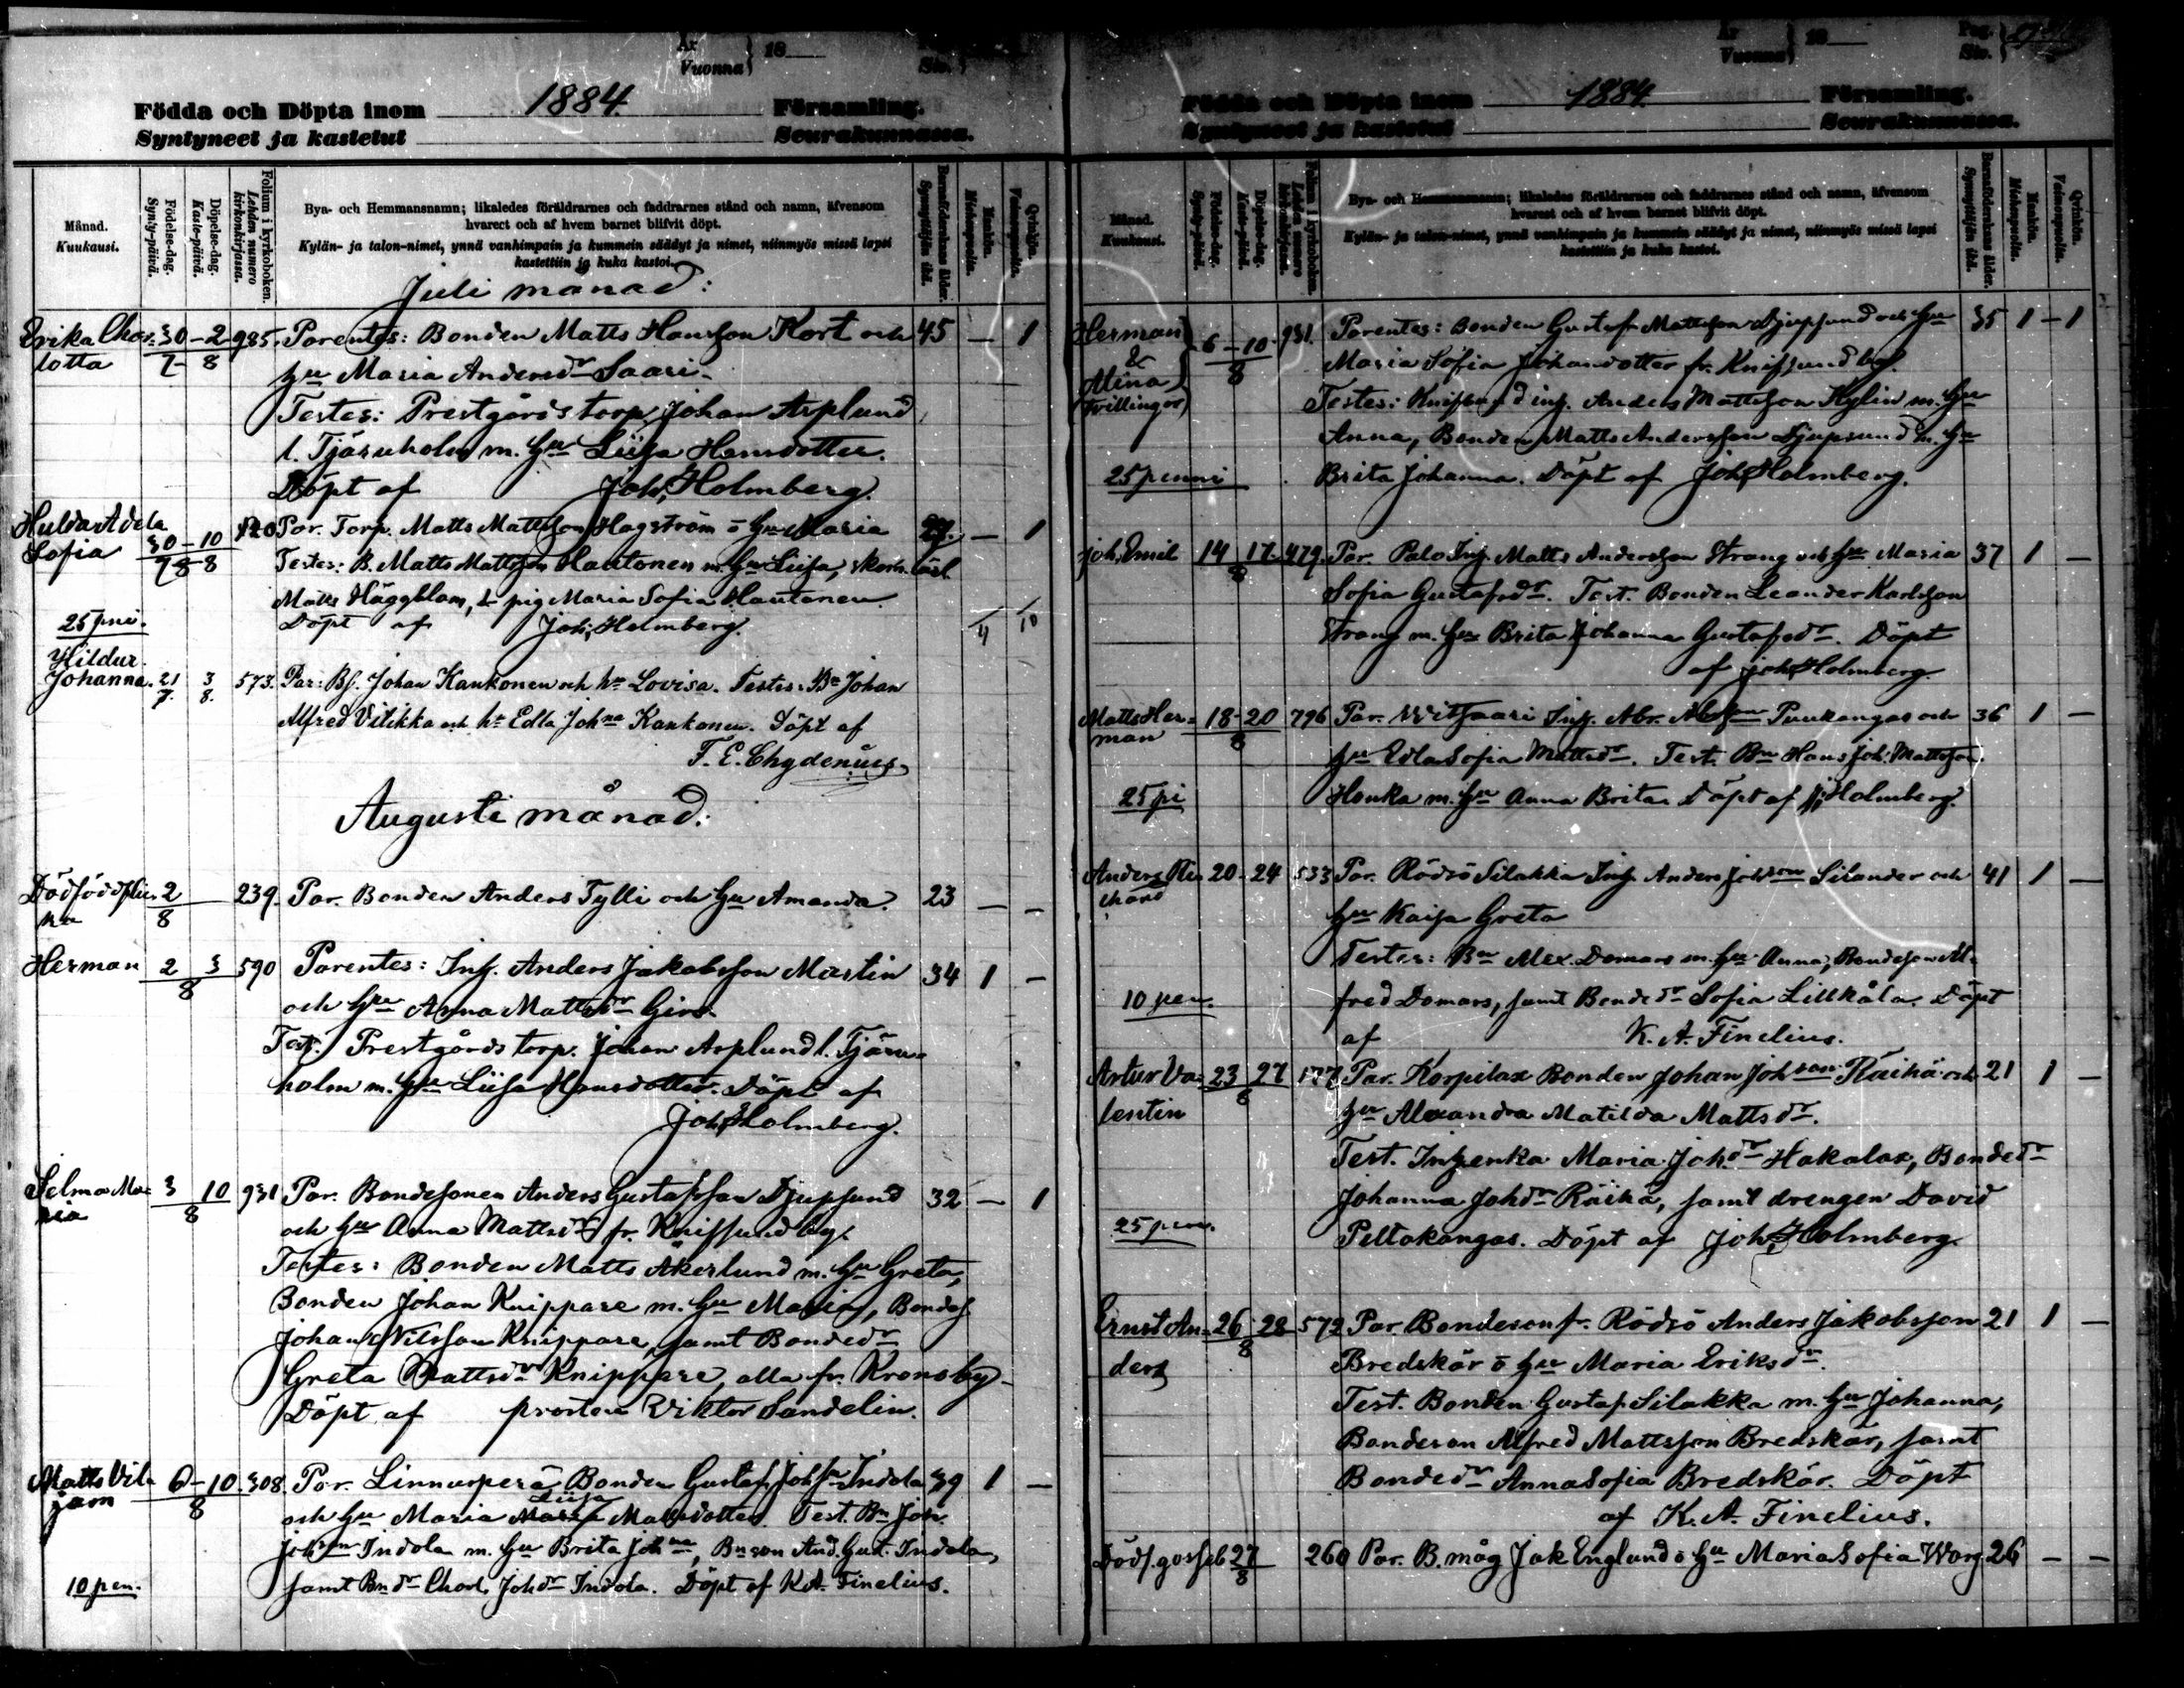 År
Vuonna } 18
Sio.
Födda och Döpta inom 1884. Församling.
Syntyneet ja kastetut Seurakunnassa.
Månad.
Kuukausi.
Födelse-dag.
Synty-päivä.
Döpelse-dag.
Kaste-päivä.
Folium i kyrkoboken.
Lehden numero kirkonkirjassa.
Bya- och Hemmansnamn; likaledes föräldrarnes och faddrarnes stånd och namn, äfvensom
hvarest och af hvem barnet blifvit döpt.
Kylän- ja talon-nimet, ynnä vanhimpain ja kummein säädyt ja nimet, niinmyös missä lapsi
kastettiin ja kuka kastoi.
Barnföderskans ålder.
Synnyttäjän ikä.
Mankön.
Miehenpuolia.
Qvinkön.
Vaimonpuolia.
Juli månad:
Erika Char- 30-2 985. Parentes: Bonden Matts Hansson Kort och 45 — 1
lotta 7 8 hu Maria Andersdr Saari.
Testes: Prestgårds torp. Johan Asplund
l. Tjäruholm m. hu Liisa Hansdotter.
Döpt af Joh. Holmberg.
Hulda Adela
Sofia 30-10 120 Par. Torp. Matts Mattsson Hagström o hu Maria 27. — 1
7 8 Testes: B. Matts Mattsson Hautonen m. hu Liisa,
Matts Häggblom, & pig. Maria Sofia Hautonen.
25 pni. Döpt af Joh. Holmberg. 4 10
Hildur
Johanna. 21 3 573. Par: Bs. Johan Kankonen och hu Lovisa. Testes: Bn Johan
7. 8. Alfred Vitikka och hu Edla Johna Kankonen. Döpt af
F. E. Chydenius.
Augusti månad:
Dödfödd flic- 2 239. Par. Bonden Anders Tylli och hu Amanda. 23 — —
ka 8
Herman 2 3 590 Parentes: Inh. Anders Jakobsson Martin 34 1 —
8 och hu Anna Mattsdr Girs.
Test. Prestgårds torp. Johan Asplund l. Tjäru-
holm m. hu Liisa Hansdotter. Döpt af
Joh. Holmberg.
Selma Ma- 3 10 931 Par. Bondesonen Anders Gustafsson Djupsund 32 — 1
ria 8 och hu Anna Mattsdr fr. Knifsund by.
Testes: Bonden Matts Åkerlund m. hu Greta,
Bonden Johan Knippare m. hu Maria, Bondes.
Johan Nilsson Knippare, samt Bondedr
Greta Mattsdr Knippare, alla fr. Kronoby
Döpt af prosten Viktor Sandelin.
Matts Vil- 6-10. 308. Par. Linnusperä Bonden Gustaf Johsn Indola 39 1 —
jam 8 Liisa
och hu Maria Mattsdotter. Test. Bn Joh.
Johsn Indola m. hu Brita Johna, Bnson And. Gust. Indola,
10 pen. samt Bndr Charl. Johdr Indola. Döpt af K. A. Finelius.
År
Vuonna } 18
Pag.
Sio. }
Födda och Döpta inom 1884. Församling.
Syntyneet ja kastetut Seurakunnassa.
Månad.
Kuukausi.
Födelse-dag.
Synty-päivä.
Döpelse-dag.
Kaste-päivä.
Folium i kyrkoboken.
Lehden numero kirkonkirjassa.
Bya- och Hemmansnamn; likaledes föräldrarnes och faddrarnes stånd och namn, äfvensom
hvarest och af hvem barnet blifvit döpt.
Kylän- ja talon-nimet, ynnä vanhimpain ja kummein säädyt ja nimet, niinmyös missä lapsi
kastettiin ja kuka kastoi.
Barnföderskans ålder.
Synnyttäjän ikä.
Mankön.
Miehenpuolia.
Qvinkön.
Vaimonpuolia.
Herman 6-10. 931. Parentes: Bonden Gustaf Mattsson Djupsund och hu 35 1 - 1
& 8 Maria Sofia Johansdotter fr. Knifsund by.
Alina Testes: Knifsund inh. Anders Mattsson Kylin m. hu
(tvillingar) Anna, Bonden Matts Andersson Djupsund m. hu
25 penni Brita Johanna. Döpt af Joh. Holmberg.
Joh. Emil 14 17 479. Par. Palo Inh. Matts Andersson Strang och hu Maria 37 1 —
8 Sofia Gustafsdr. Test. Bonden Leander Karlsson
Strang m. hu Brita Johanna Gustafsdr. Döpt
af Joh. Holmberg.
Matts Her- 18-20 796 Par. Witsaari Inh. Abr. Abrson Puukangas och 36 1 —
man 8 hu Edla Sofia Mattsdr. Test. Bn Hans Joh. Mattsson
25 pi Honka m. hu Anna Brita. Döpt af J. Holmberg.
Anders Ri- 20-24 533 Par. Rödsö Silakka Inh. Anders Johson Silander och 41 1 —
chard hu Kaisa Greta
Testes: Bn Alex. Domars m. hu Anna, Bondeson Al-
10 pen. fred Domars, samt Bondedr Sofia Lillkåla. Döpt
af K. A. Finelius.
Artur Va- 23 27 177 Par. Korpilax Bonden Johan Johson Räihä och 21 1 —
lentin 8 hu Alexandra Matilda Mattsdr.
Test. Inh.enka Maria Johdr Hakalax, Bondedr
Johanna Johdr Räihä, samt drengen David
25 pen. Peltokangas. Döpt af Joh. Holmberg.
Ernst An- 26-28 572 Par. Bondeson fr. Rödsö Anders Jakobsson 21 1 —
ders 8 Bredskär o hu Maria Eriksdr.
Test. Bonden Gustaf Silakka m. hu Johanna,
Bondeson Alfred Mattsson Bredskär, samt
Bondedr Anna Sofia Bredskär. Döpt
af K. A. Finelius.
Dödf. gosseb. 27 260 Par. B. måg Jak Englund o hu Maria Sofia Warg 26 — —
8